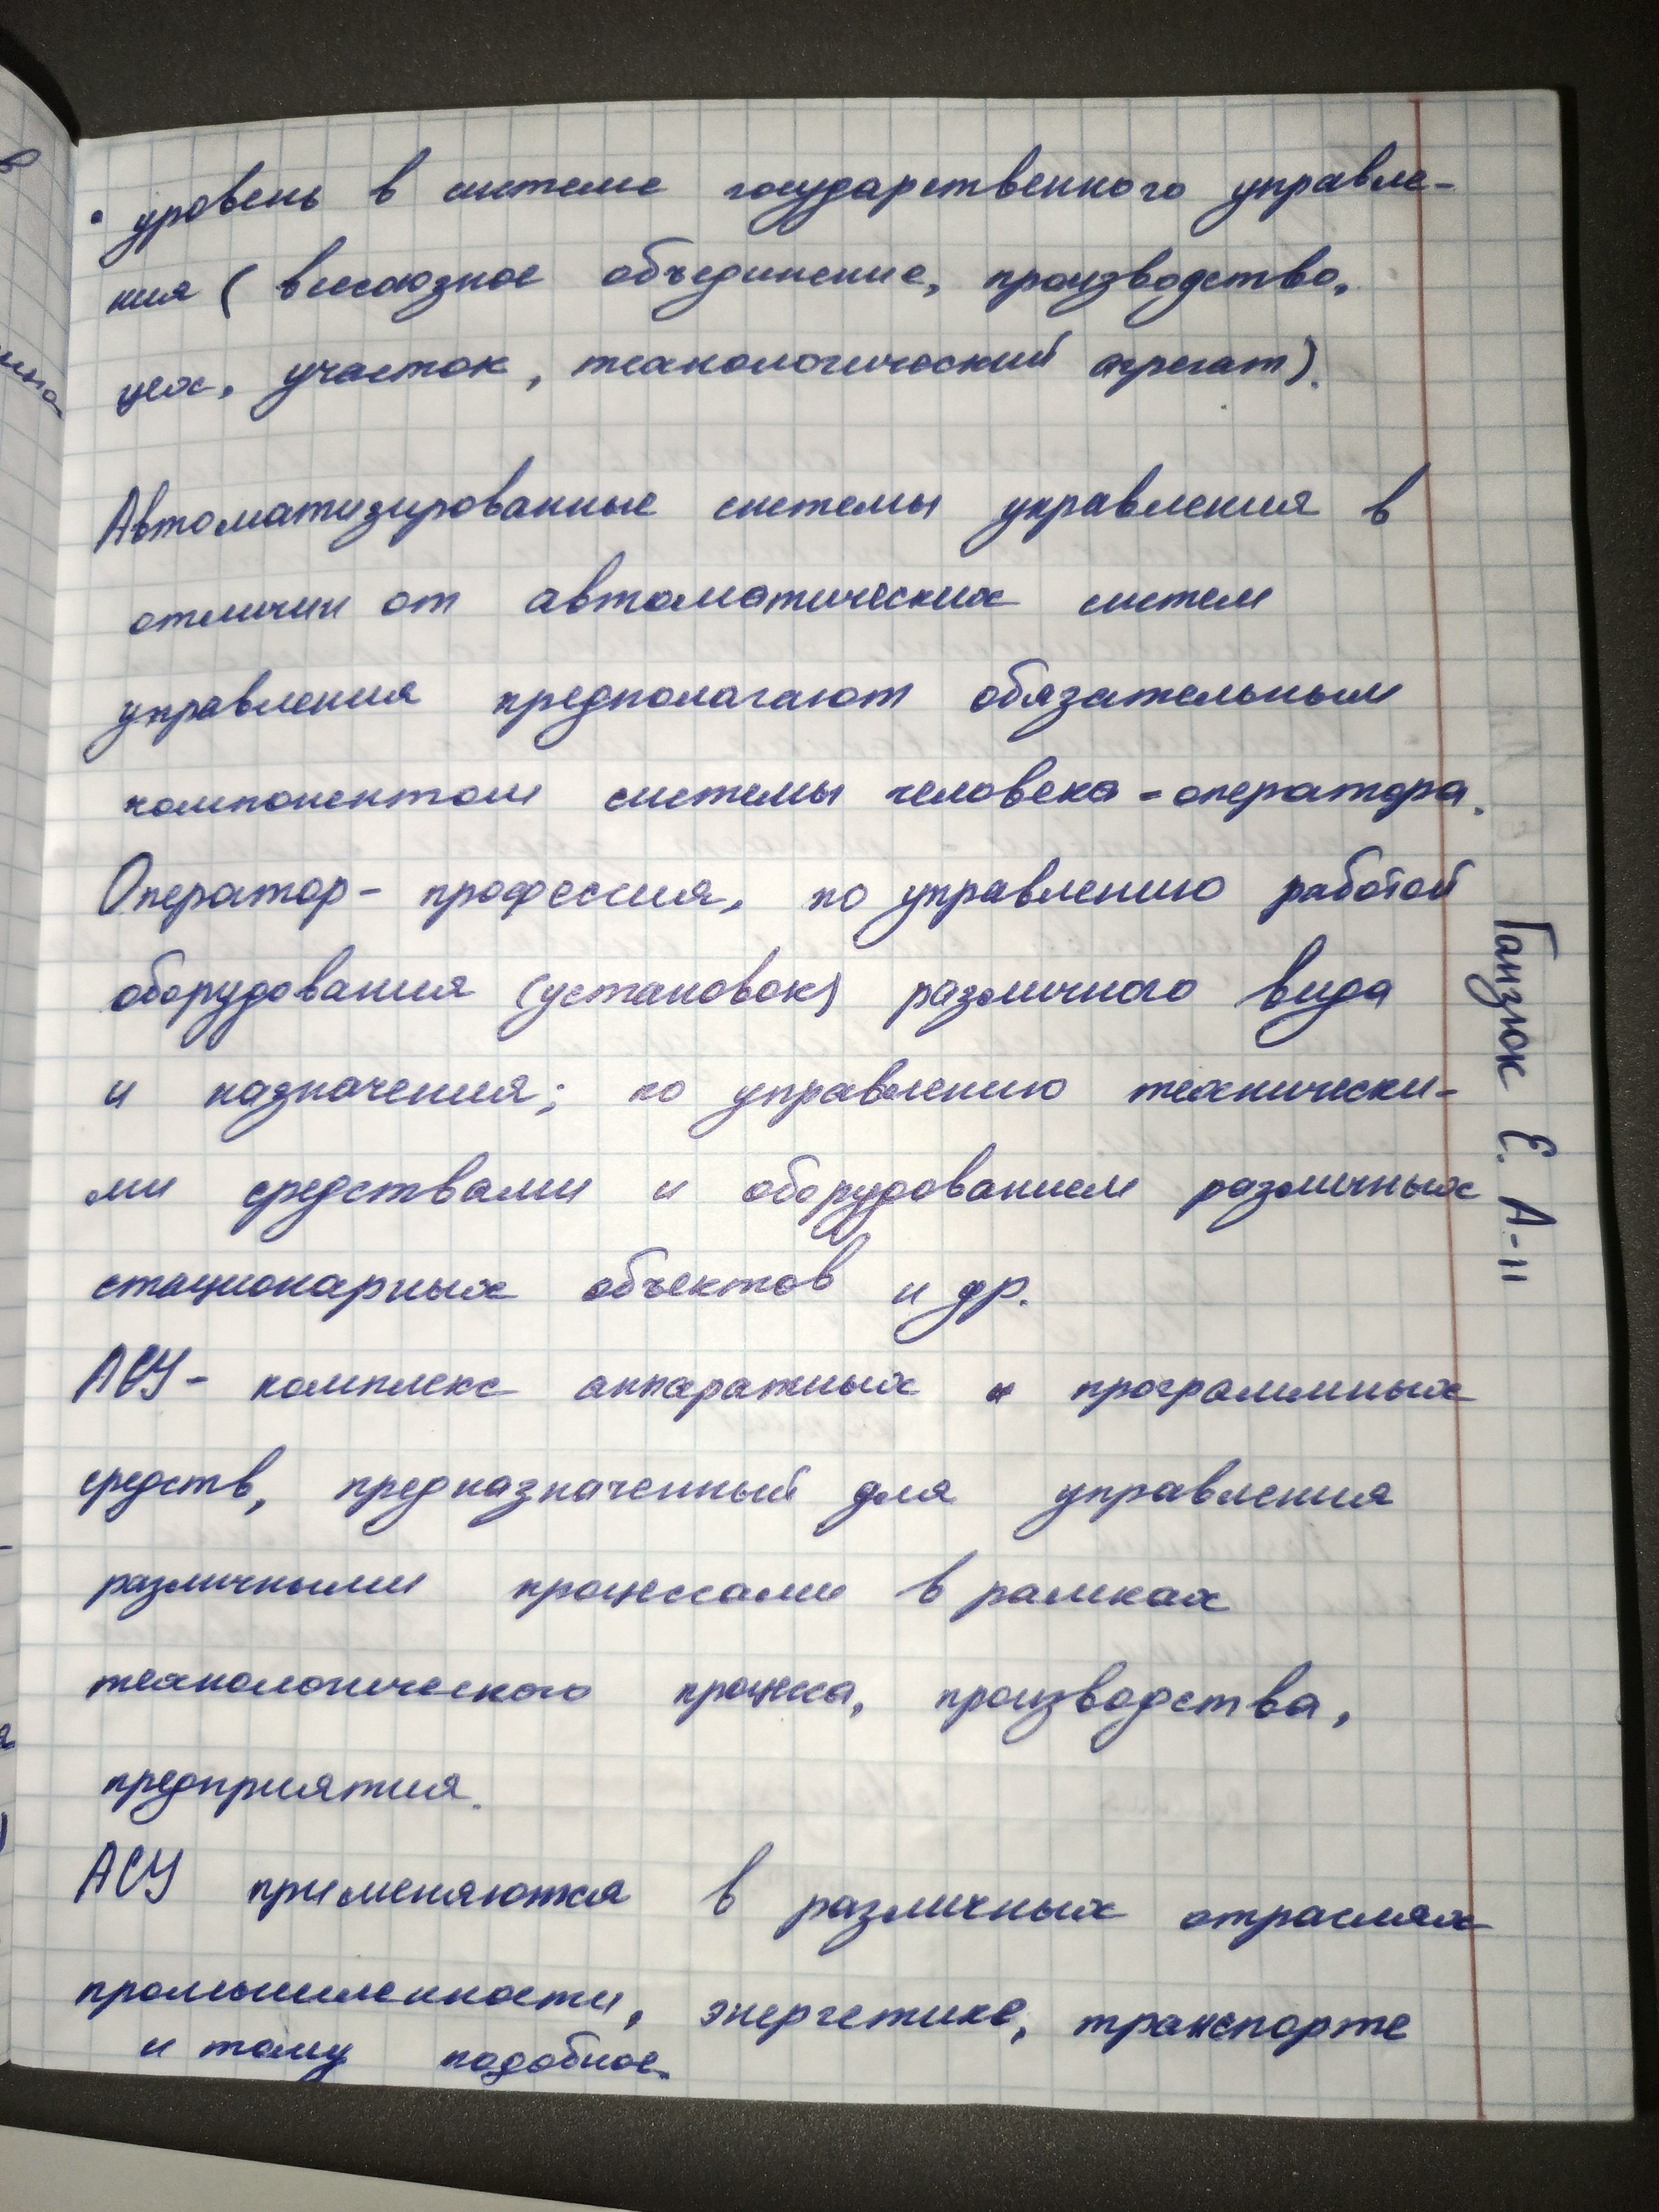 • уровень в системе государственного управле-
ния ( всесоюзное объединение, производство,
цех, участок, технологический агрегат).
Автоматизированные системы управления в
отличии от автоматических систем
управления предполагают обязательным
компонентом системы человека-оператора.
Оператор- профессия, по управлению работой
оборудования (установок) различного вида
и назначения; по управлению технически-
ми средствами и оборудованием различных
стационарных объектов и др.
АСУ- комплекс аппаратных и программных
средств, предназначенный для управления
различными процессами в рамках
технологического процесса, производства,
предприятия.
АСУ применяются в различных отраслях
промышленности, энергетике, транспорте
и тому подобное.
Ганзюк Е. А-11